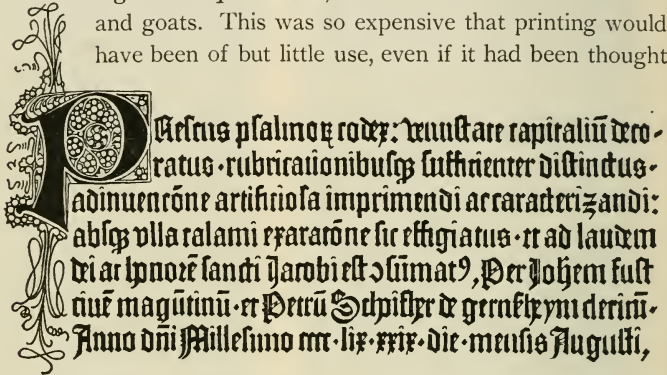 and goats. This was so expensive that printing would
have been of but little use, even if it had been thought
Preſens pſalmoꝝ codex: venuſtate capitaliū deco-
ratus · rubricationibuſqꝫ ſufficienter diſtinctus ·
adinuencōne artificioſa imprimendi ac caracterizandi:
abſqꝫ vlla calami exaracōne ſic effigiatus · et ad laudem
dei ac honorē ſancti Jacobi eſt ↄſūmatꝰ, Per Joħem fuſt
ciuē magūtinū · et Petrū Schoiffher de gernſzheym clericū ·
Anno dn̄i Milleſimo cccc · lix · xxix · die · menſis Auguſti,